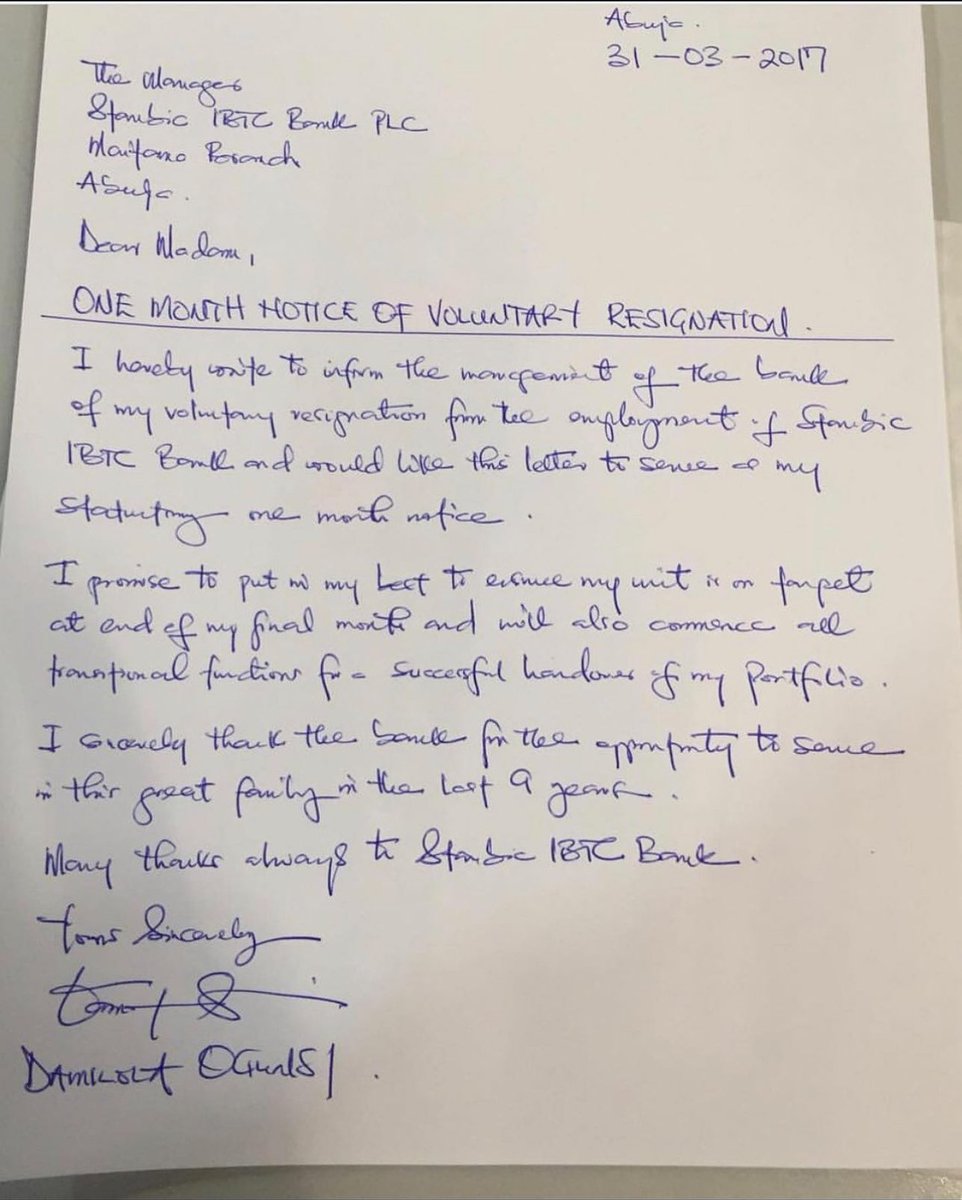 Abuja.
31-03-2017
The Manager
Stanbic IBTC Bank PLC
Maitama Branch
Abuja.
Dear Madam,
ONE MONTH NOTICE OF VOLUNTARY RESIGNATION.
I hereby write to inform the management of the bank
of my voluntary resignation from the employment of Stanbic
IBTC Bank and would like this letter to serve as my
statutory one month notice.
I promise to put in my best to ensure my unit is on target
at end of my final month and will also commence all
transitional functions for a successful handover of my portfolio.
I sincerely thank the bank for the opportunity to serve
in this great family in the last 9 years.
Many thanks always to Stanbic IBTC Bank.
Yours Sincerely
DAMILOLA OGUNLSI.